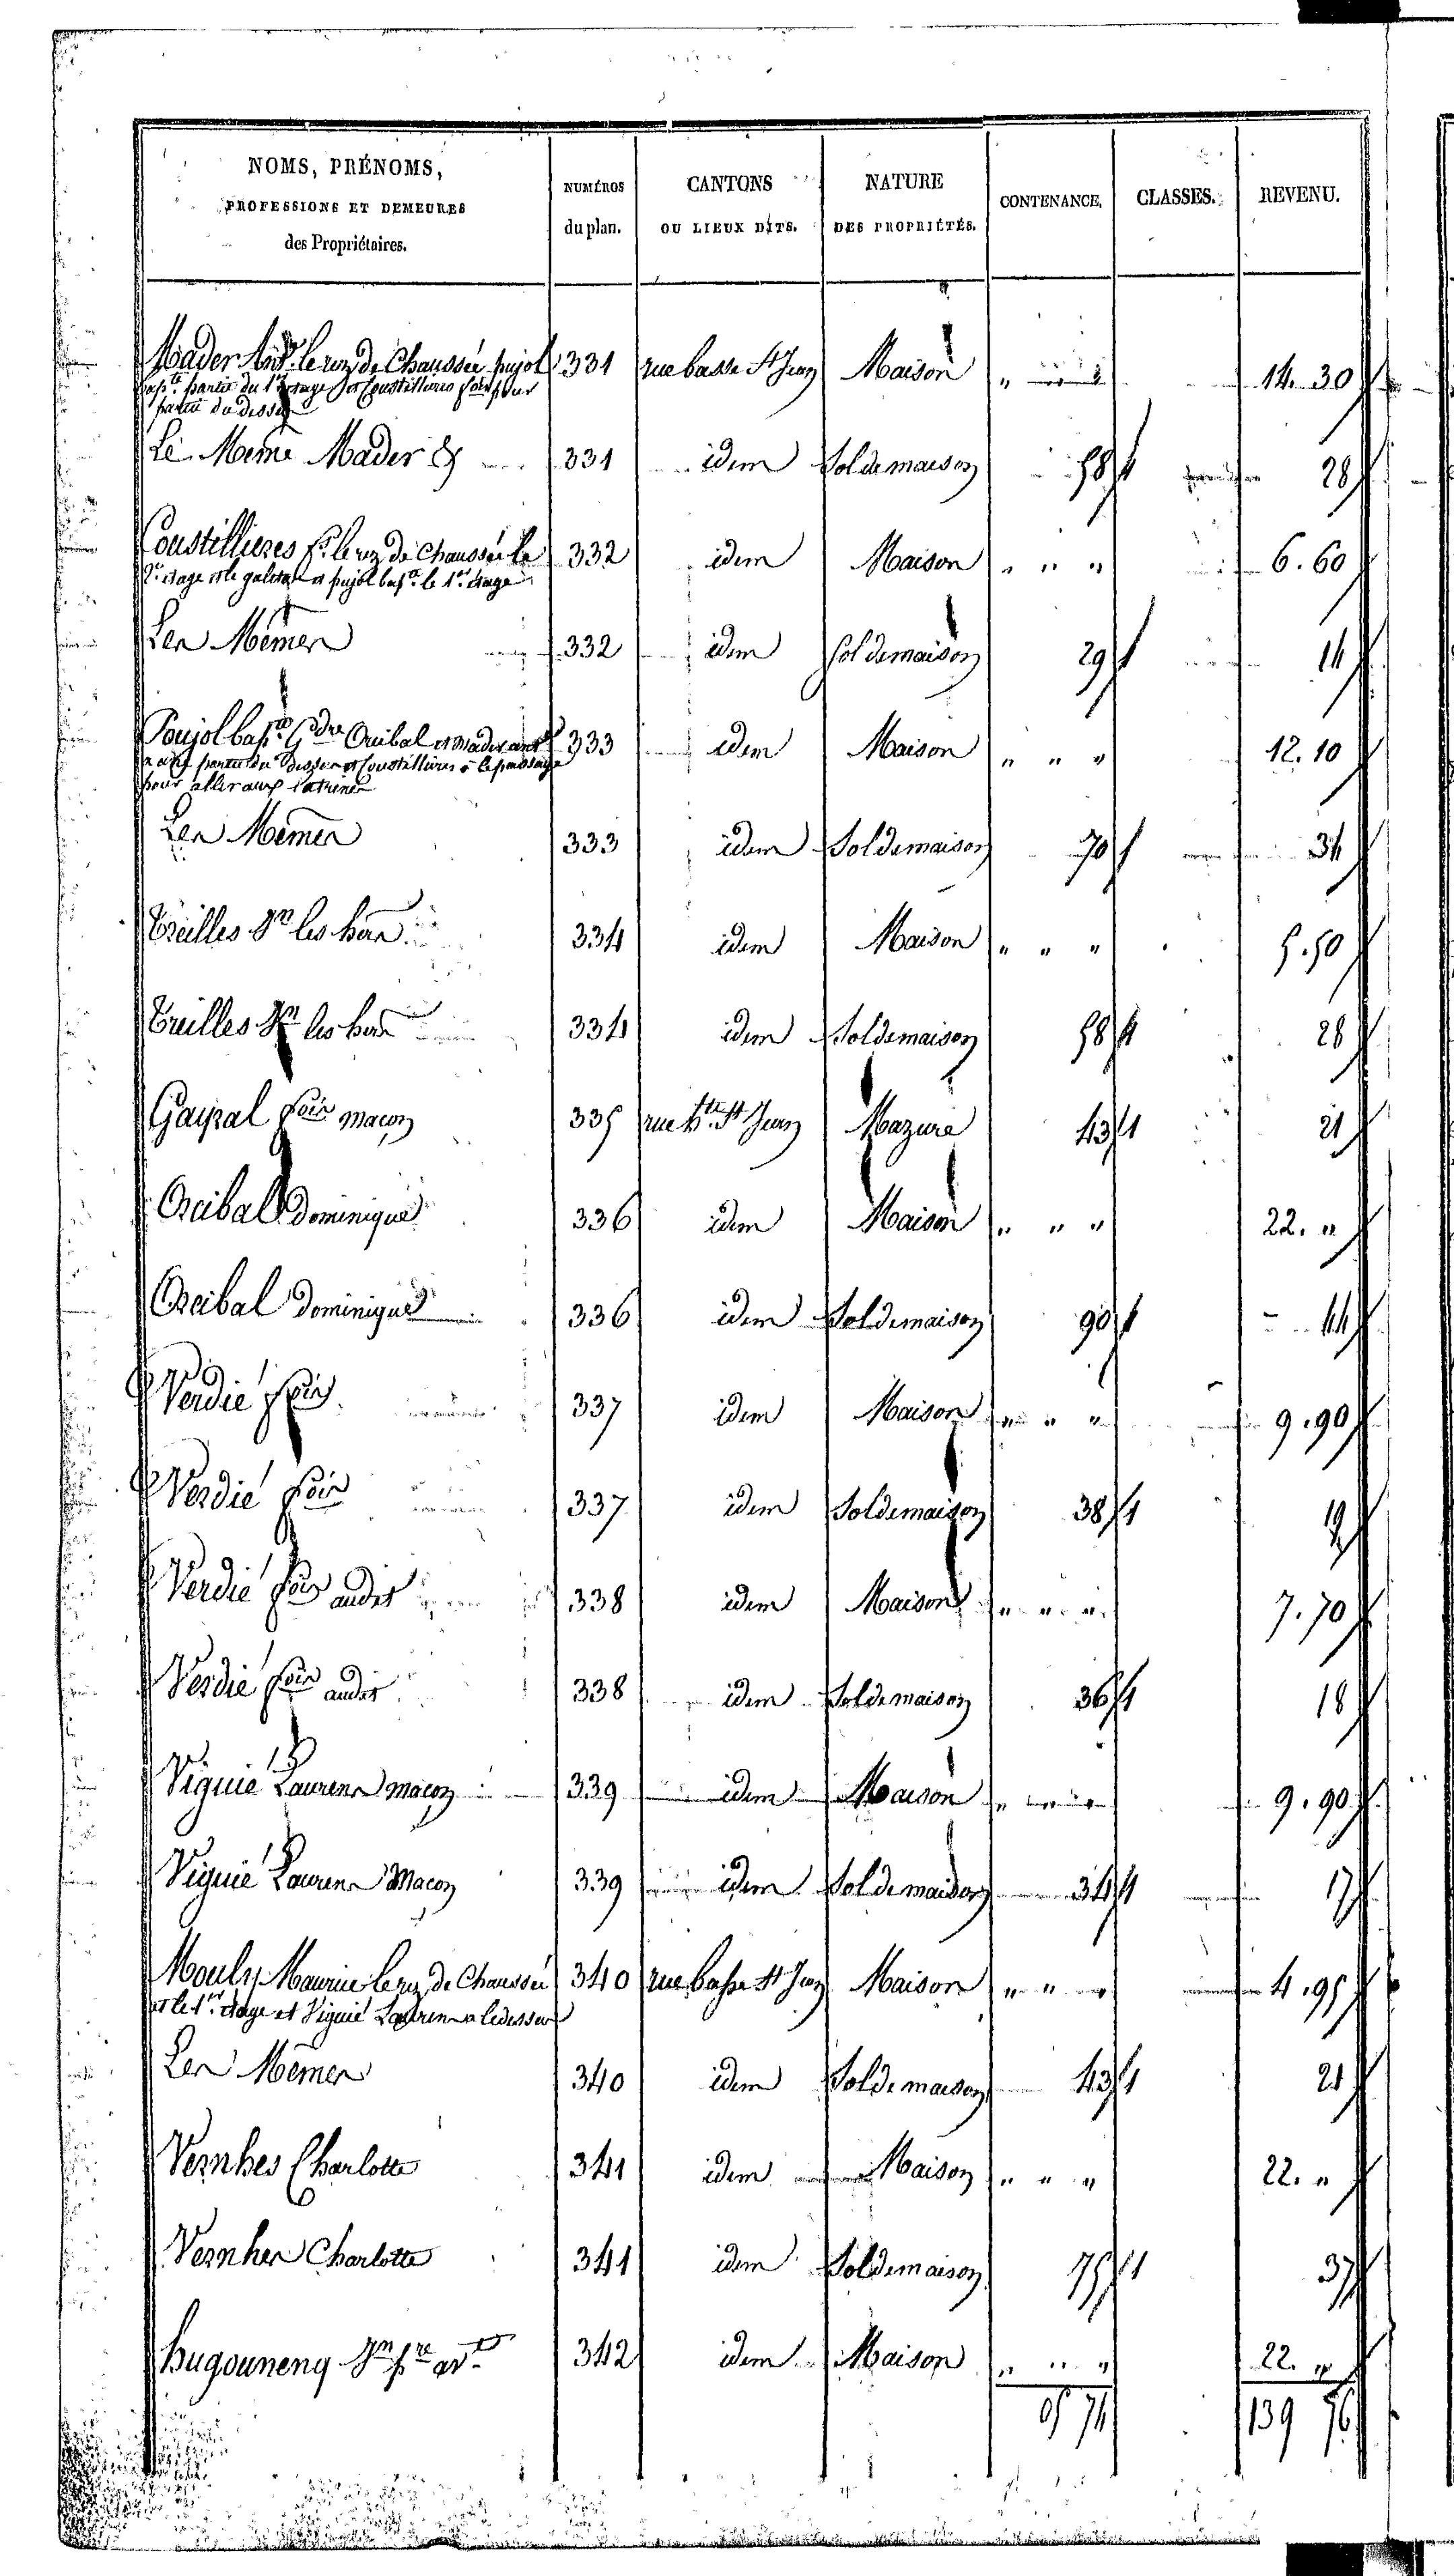 NOMS, PRÉNOMS, PROFESSIONS ET DEMEURES des Propriétaires. | NUMÉROS du plan. | CANTONS OU LIEUX DITS. | NATURE DES PROPRIÉTÉS. | CONTENANCE. | CLASSES. | REVENU.
Mader Ant. le rez de Chaussée pujol | 331 | rue basse St Jean | Maison | " " " | | 14. 30
bapte. partie du 1er étage et Coustillieres pour
partie du dessus
Le Meme Mader & | 331 | idem | Sol de maison | 58 | 1 | 28
Coustillieres le rez de Chaussée le | 332 | idem | Maison | " " " | | 6. 60
2e. etage et le galetas et pujol bapte. le 1er. etage
Les Mêmes | 332 | idem | Sol de maison | 29 | 1 | 14
Poujol bapte. Orcibal et mader ant | 333 | idem | Maison | " " " | | 12. 10
partie du dessus et Coustillieres le passage
pour aller aux latrines
Les Mêmes | 333 | idem | Sol de maison | 70 | 1 | 34
Treilles Jn les hers | 334 | idem | Maison | " " " | | 5. 50
Treilles Jn les hers | 334 | idem | Sol de maison | 58 | 1 | 28
Gayral fois macon | 335 | rue hte. St Jean | Mazure | 43 | 1 | 21
Orcibal Dominique | 336 | idem | Maison | " " " | | 22. "
Orcibal Dominique | 336 | idem | Sol de maison | 90 | 1 | 44
Verdié fois | 337 | idem | Maison | " " " | | 9. 90
Verdié fois | 337 | idem | Sol de maison | 38 | 1 | 19
Verdié fois audit | 338 | idem | Maison | " " " | | 7. 70
Verdié fois audit | 338 | idem | Sol de maison | 36 | 1 | 18
Viguié Laurens macon | 339 | idem | Maison | " " " | | 9. 90
Viguié Laurens Macon | 339 | idem | Sol de maison | 34 | 1 | 17
Mouly Maurice le rez de Chaussée | 340 | rue basse St Jean | Maison | " " " | | 4. 95
et le 1er. etage et Viguié Laurens le dessus
Les Mêmes | 340 | idem | Sol de maison | 43 | 1 | 21
Vernhes Charlotte | 341 | idem | Maison | " " " | | 22. "
Vernhes Charlotte | 341 | idem | Sol de maison | 75 | 1 | 37
hugouneng Jn pre | 342 | idem | Maison | " " " | | 22. "
05 74 | 139 76